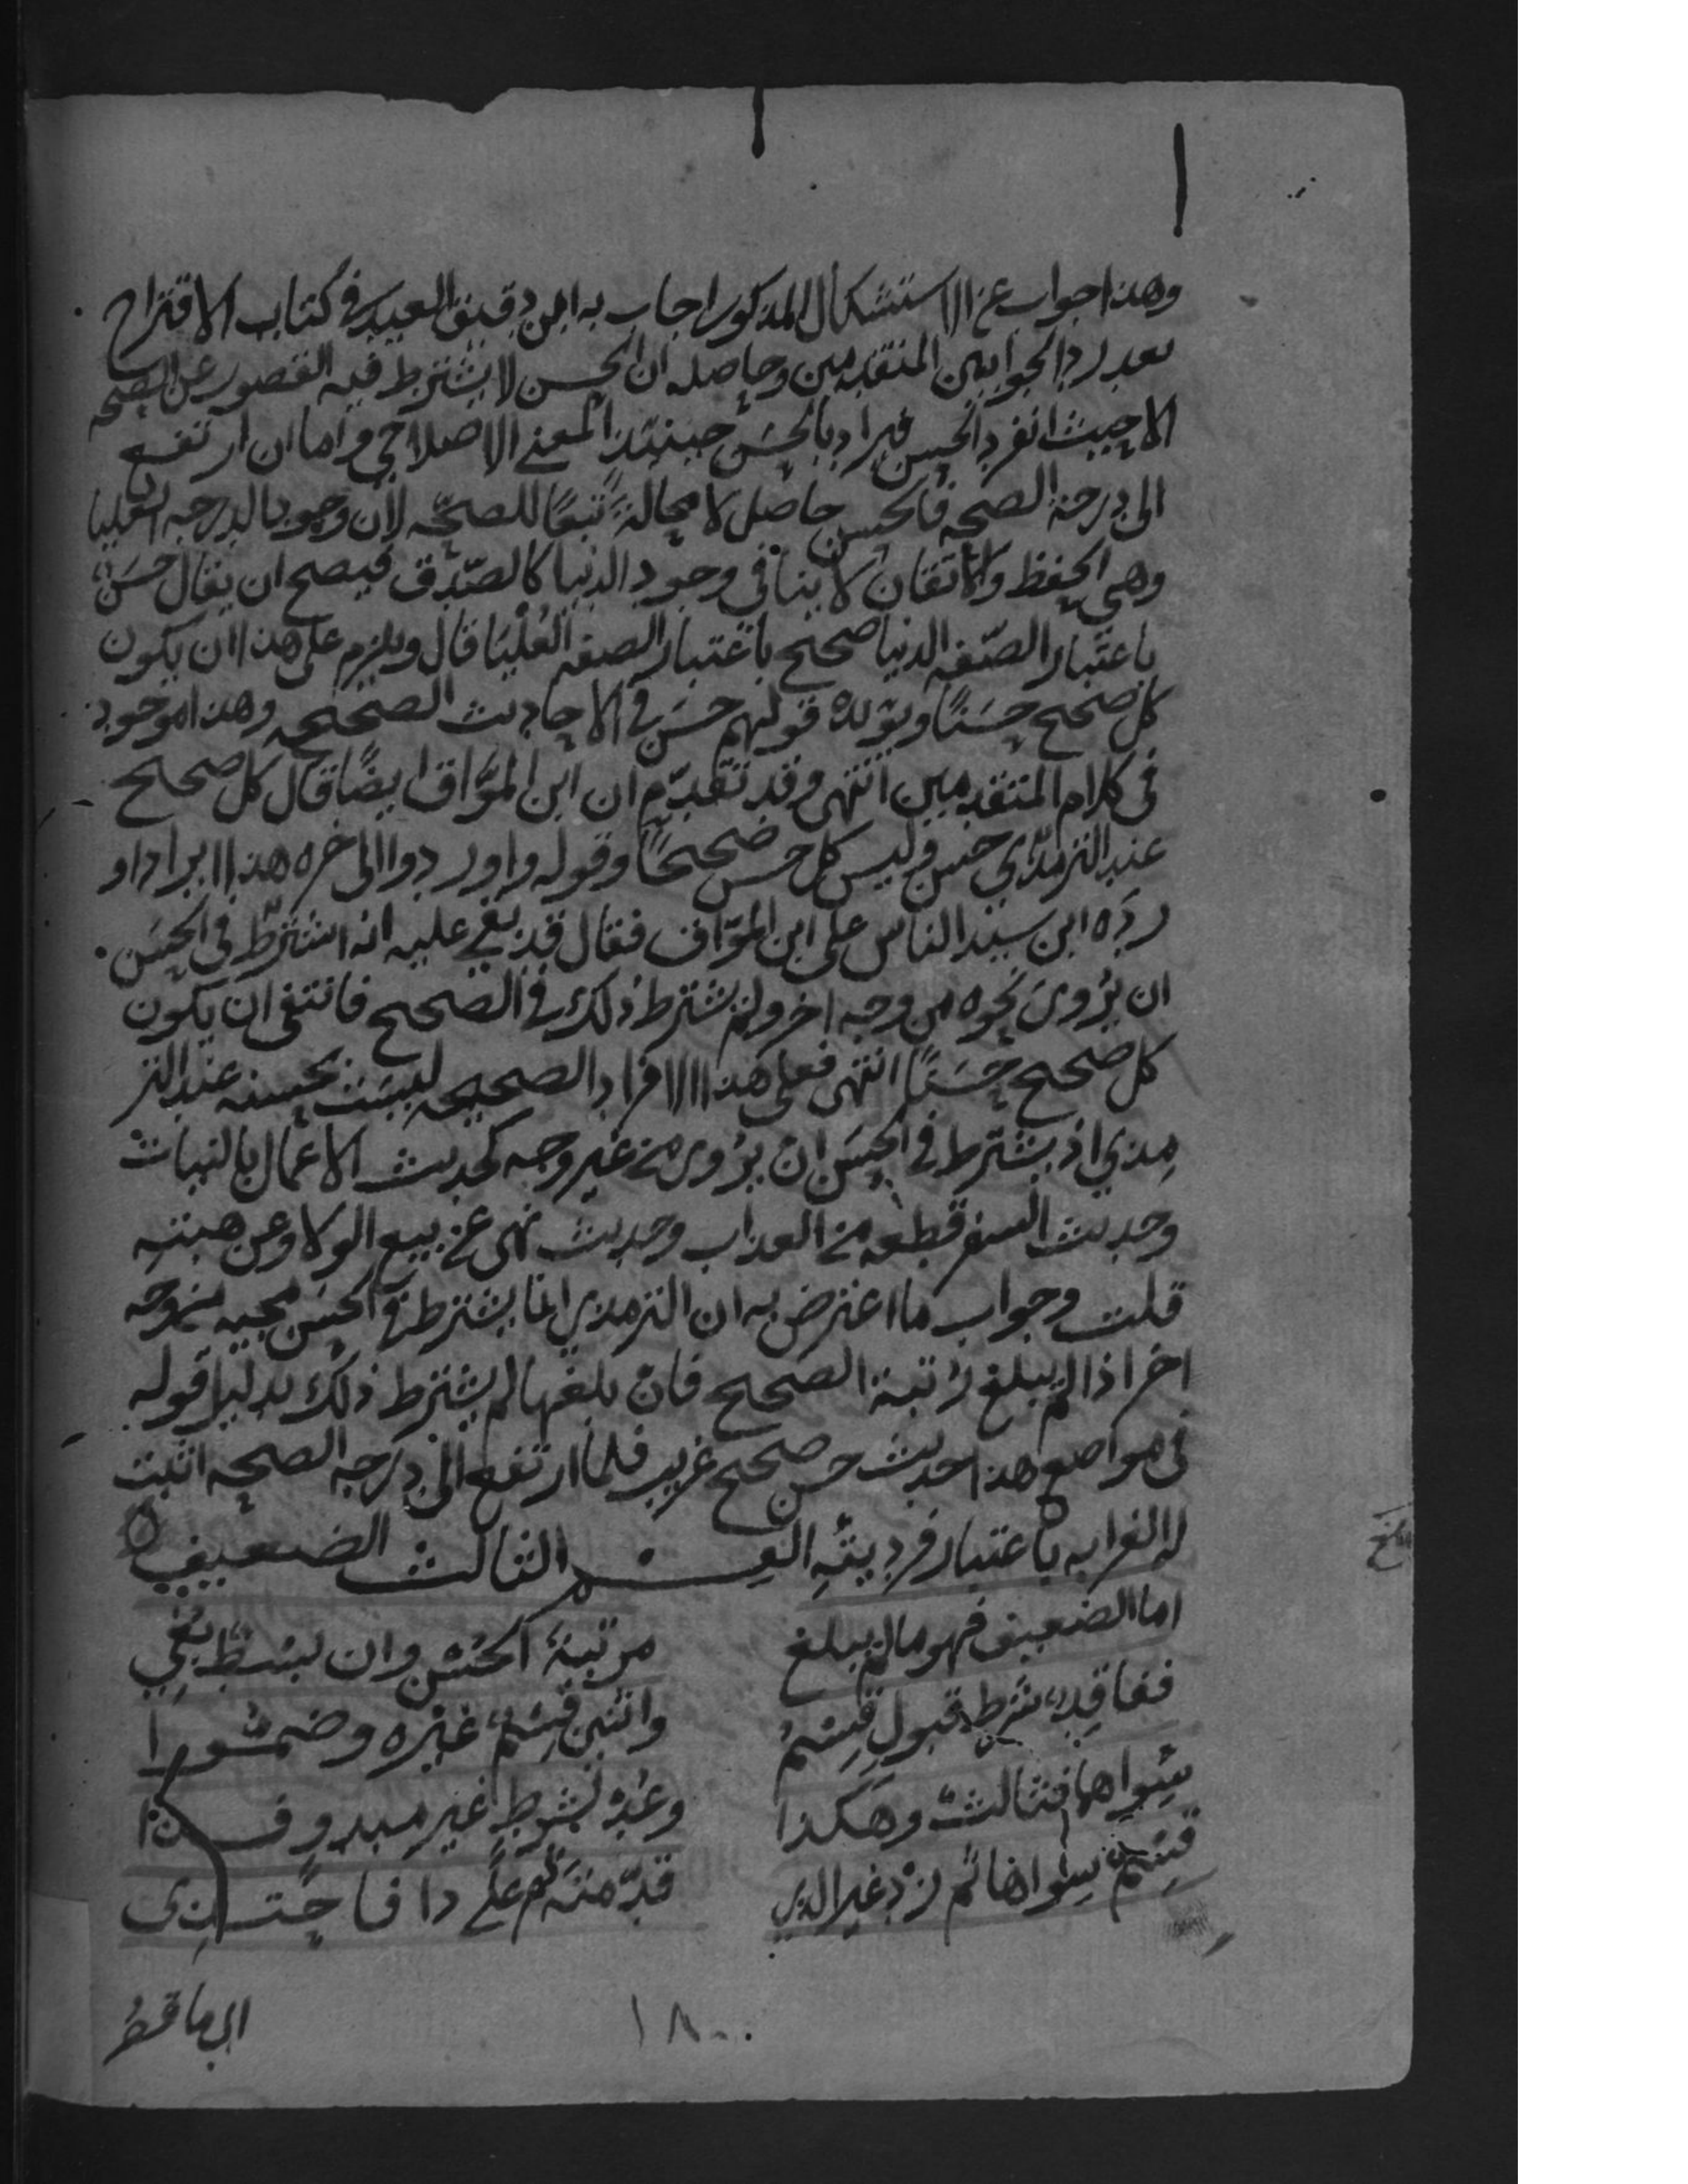 وهذا جواب عن الاستشكال المذكور اجاب به ابن دقيق العيد في كتاب الاقتراح
بعد رد الجوابين المتقدمين وحاصله ان الحسن لا يشترط فيه القصور عن الصحة
الا حيث انفرد الحسن فيراد بالحسن حينئذ المعنى الاصلاحي واما ان ارتفع
الى درجة الصحه فالحسن حاصل لا محالة تبعًا للصحّه لان وجود الدرجه العليا
وهي الحفظ والاتقان لا ينافي وجود الدنيا كالصّدق فيصح ان يقال حسَن
باعتبار الصّفه الدنيا صحيح باعتبار الصفه العُلْيَا قال ويلزم على هذا ان يكون
كل صحيح حسَنًا ويؤيده قولهم حسَن في الاحاديث الصحيحه وهذا موجود
في كلام المتقدمين انتهى وقد تقدّم ان ابن الموّاق ايضًا قال كل صحيح
عند الترمذي حسن وليس كل حسن صحيحًا وقوله واوردوا الى اخره هذا ايراد او
ردَه ابن سيد الناس على ابن الموّاق فقال قد بقي عليه انه اشترط في الحسَن
ان يُروى نحوه من وجه اخر ولم يشترط ذلك في الصحيح فانتفى ان يكون
كل صحيح حسَنًا انتهى فعلى هذا الافراد الصحيحه ليست بحسنه عند التر
مِذي اذ يشترط في الحسَن ان يُروى من غير وجه كحديث الاعمال بالنيات
وحديث السفر قطعه من العذاب وحديث نهى عن بيع الولا وعن هبته
قلت وجواب ما اعترض به ان الترمذي انما يشترط في الحسَن مجيه من وجه
اخر اذا لم يبلغ رُتبة الصحيح فان بلغها لم يشترط ذلك بدليل قوله
في مواضع هذا حديث حسن صحيح غريب فلما ارتفع الى درجه الصحه اثبت
له الغرابه باعتبار فرديته القسم الثالث الضعيف ه
اما الضعيف فهو مالم يبلغ مرتبة الحُسْن وان بَسْطٌ بُغِي
ففاقدٌ شرط قبولٍ قِسْمُ واثنين قِسْمٌ غيْرُه وضمّوا
سِواهما فثالثٌ وهكذا وعُدْ لشرطٍ غير مبدوٍّ فذا
قِسمٌ سِواها ثم زدْ غير الذي قدّمتَه ثم عَلَى ذا فاحتذِى
بلغ
١٨